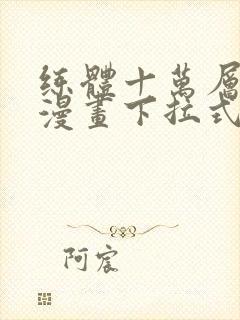 練體十萬層
漫畫下拉式
阿宸